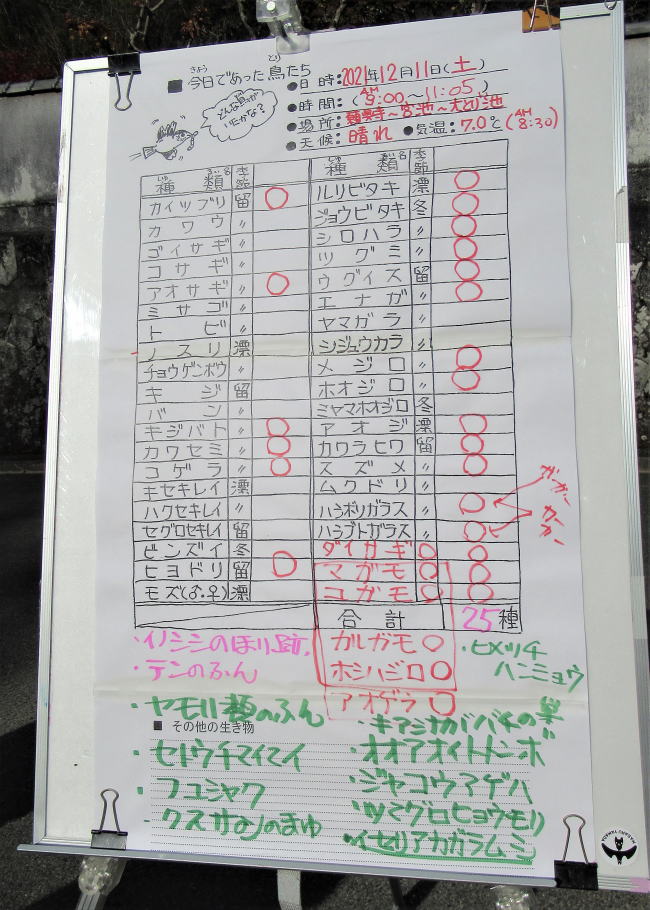 きょう とり
■ 今日であった鳥たち
どんな鳥がいたかな?
●日時:2021年12月11日(土)
●時間:(AM 9:00～11:05)
●場所:～宮池～大どり池
●天候:晴れ ●気温:7.0℃(AM 8:30)
種類名 季節
カイツブリ 留 ○
カワウ 〃
ゴイサギ 〃
コサギ 〃
アオサギ 〃 ○
ミサゴ 〃
トビ 〃
ノスリ 漂
チョウゲンボウ 〃
キジ 留
バン 〃
キジバト 〃 ○
カワセミ 〃 ○
コゲラ 〃 ○
キセキレイ 漂
ハクセキレイ 〃
セグロセキレイ 留
ビンズイ 冬
ヒヨドリ 留 ○
モズ(♂・♀) 漂
種類名 季節
ルリビタキ 漂 ○
ジョウビタキ 冬 ○
シロハラ 〃 ○
ツグミ 〃 ○
ウグイス 留 ○
エナガ 〃 ○
ヤマガラ 〃
シジュウカラ 〃
メジロ 〃 ○
ホオジロ 〃 ○
ミヤマホオジロ 冬
アオジ 漂 ○
カワラヒワ 留 ○
スズメ 〃 ○
ムクドリ 〃
ハシボソガラス 〃 ○
ガーガー
ハシブトガラス 〃 ○
カーカー
ダイサギ ○ ○
マガモ ○ ○
コガモ ○ ○
合計 25種
カルガモ ○
ホシハジロ ○
アオゲラ ○
・イノシシのほり跡
・テンのふん
・ヤモリ類のふん
・ヒメツチハンミョウ
■ その他の生き物
・セトウチマイマイ
・フユシャク
・クスサンのまゆ
・キアシナガバチの巣
・オオアオイトトンボ
・ジャコウアゲハ
・ツマグロヒョウモン
・イセリアカイガラムシ